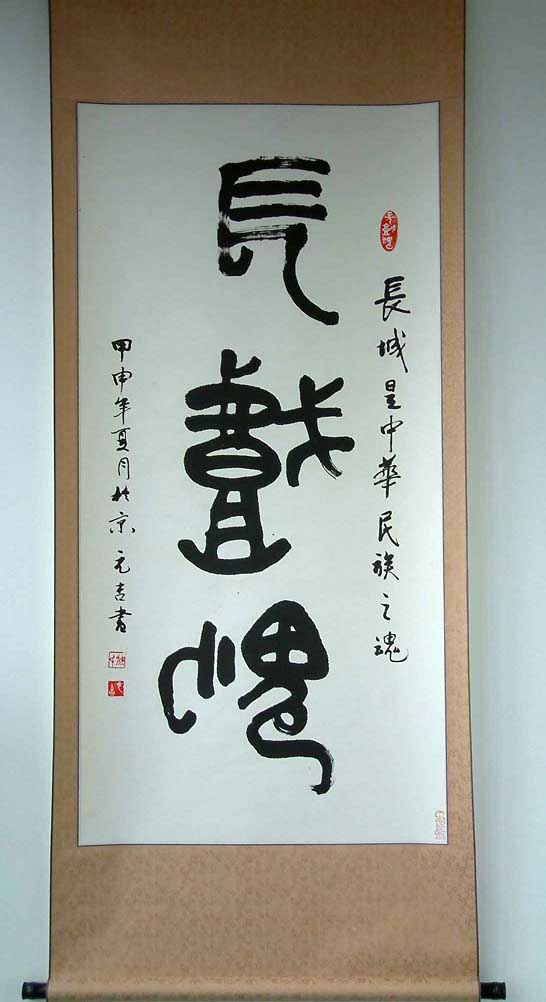 長城是中華民族之魂
長城魂
甲申年夏月北京元吉書